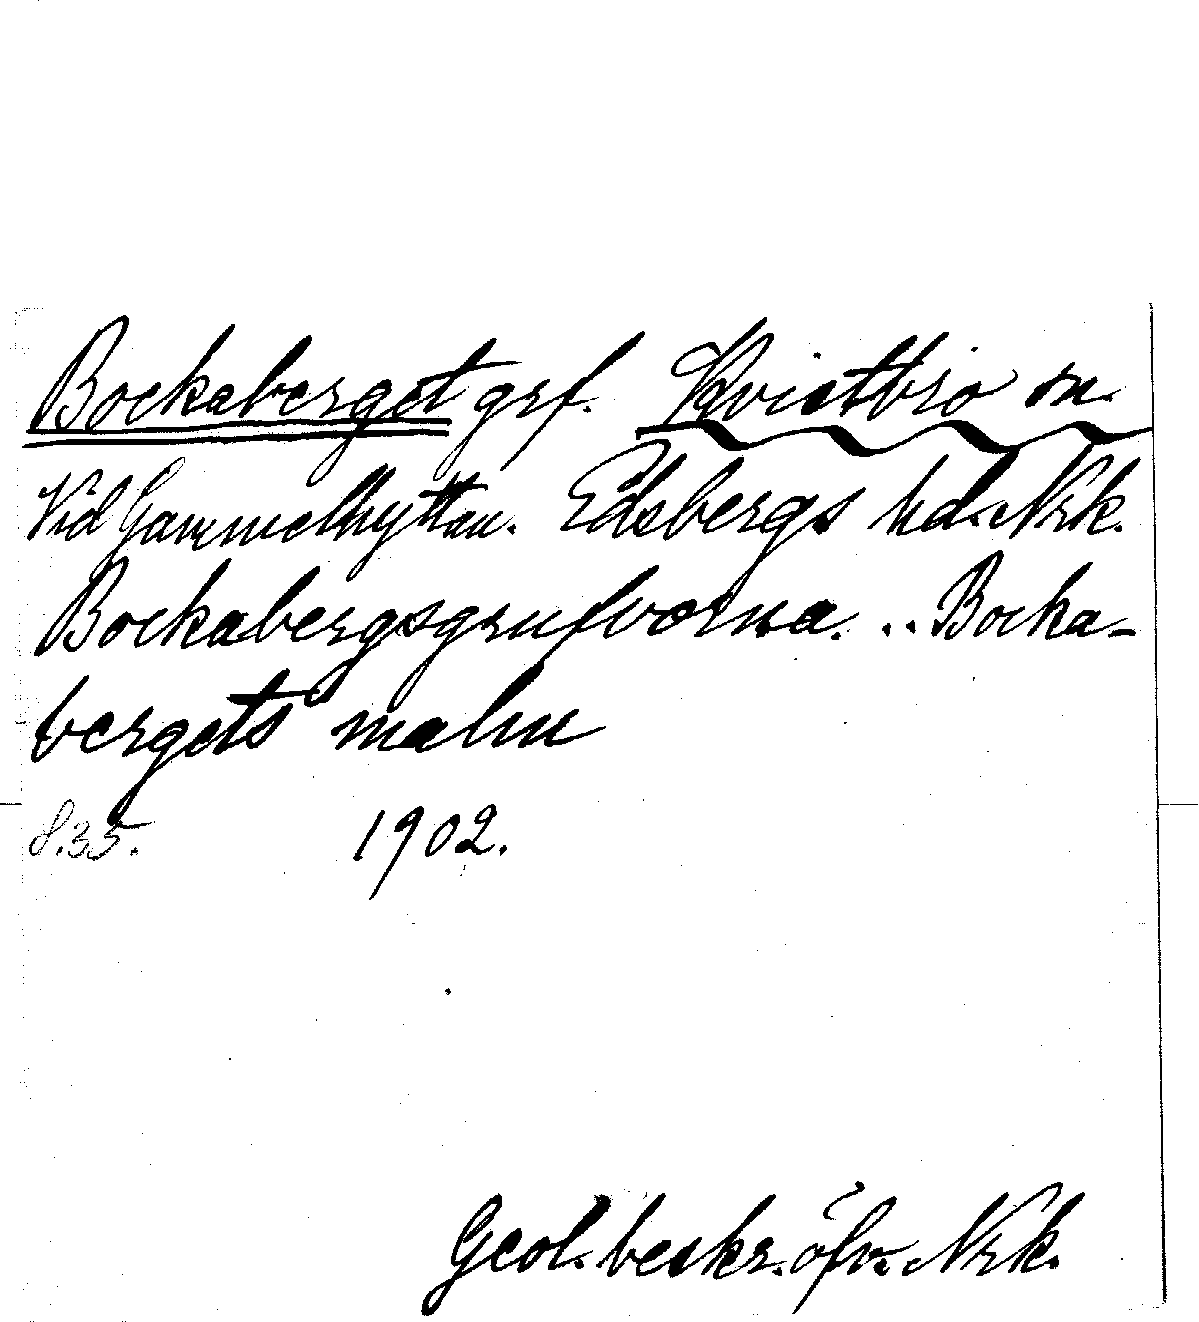 Bockaberget grf. Kvistbro sn.
Vid Gammelhyttan. Edsbergs hd. Nrk.
Bockabergsgrufvorna. .. Bocka-
bergets malm
8.35. 1902.
Geol. beskr. öfv. Nrk.